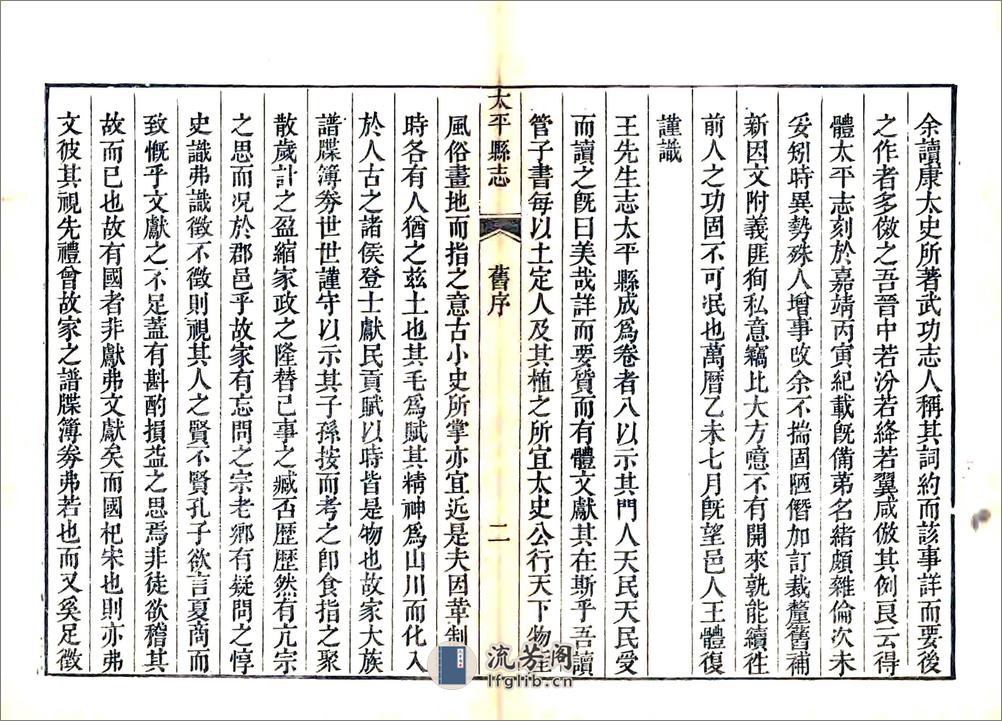 余讀康太史所著武功志人稱其詞約而該事詳而要後
之作者多倣之吾晉中若汾若絳若翼咸倣其例良云得
體太平志刻於嘉靖丙寅紀載旣備苐名緒頗雜倫次未
妥矧時異勢殊人增事改余不揣固陋僭加訂裁釐舊補
新因文附義匪狥私意竊比大方噫不有開來孰能續徃
前人之功固不可泯也萬曆乙未七月旣望邑人王體復
謹識
王先生志太平縣成爲卷者八以示其門人天民天民受
而讀之旣曰美哉詳而要質而有體文獻其在斯乎吾讀
管子書每以土定人及其植之所宜太史公行天下物產
太平縣志
舊序
二
風俗畫地而指之意古小史所掌亦宜近是夫因革制
時各有人猶之兹土也其毛爲賦其精神爲山川而化入
於人古之諸侯登士獻民貢賦以時皆是物也故家大族
譜牒簿劵世世謹守以示其子孫按而考之卽食指之聚
散歲計之盈縮家政之隆替已事之臧否歷歷然有亢宗
之思而况於郡邑乎故家有忘問之宗老鄕有疑問之惇
史識弗識徵不徵則視其人之賢不賢孔子欲言夏商而
致慨乎文獻之不足蓋有斟酌損益之思焉非徒欲稽其
故而已也故有國者非獻弗文獻矣而國杞宋也則亦弗
文彼其視先禮曾故家之譜牒簿劵弗若也而又奚足徵
流芳阁
lfglib.cn